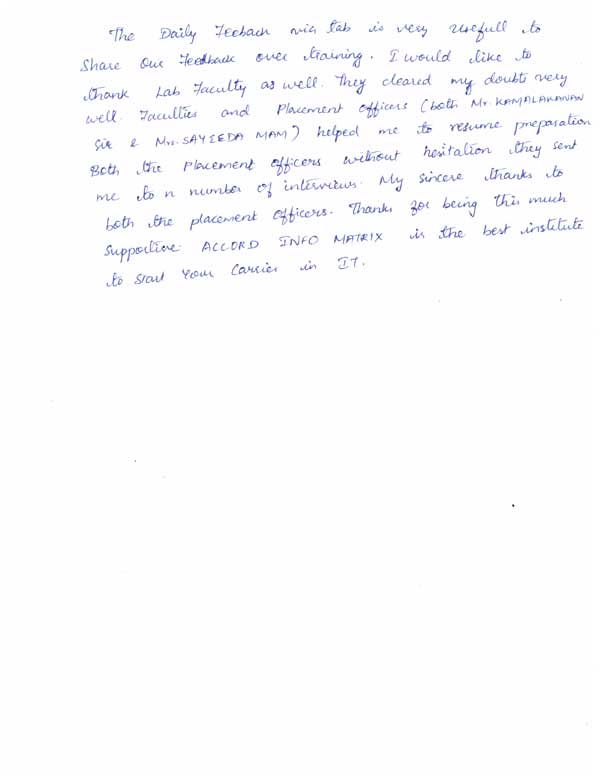 The Daily Feeback via tab is very usefull to
Share our Feedback over training. I would like to
thank Lab Faculty as well. They cleared my doubts very
well. Faculties and Placement officers (both Mr. KAMALAKANAN
Sir & Mrs. SAYEEDA MAM) helped me to resume preparation
Both the Placement officers without hesitation they sent
me to n number of interviews. My sincere thanks to
both the placement officers. Thanks for being this much
Supportive. ACCORD INFO MATRIX is the best institute
to start your Carrier in IT.